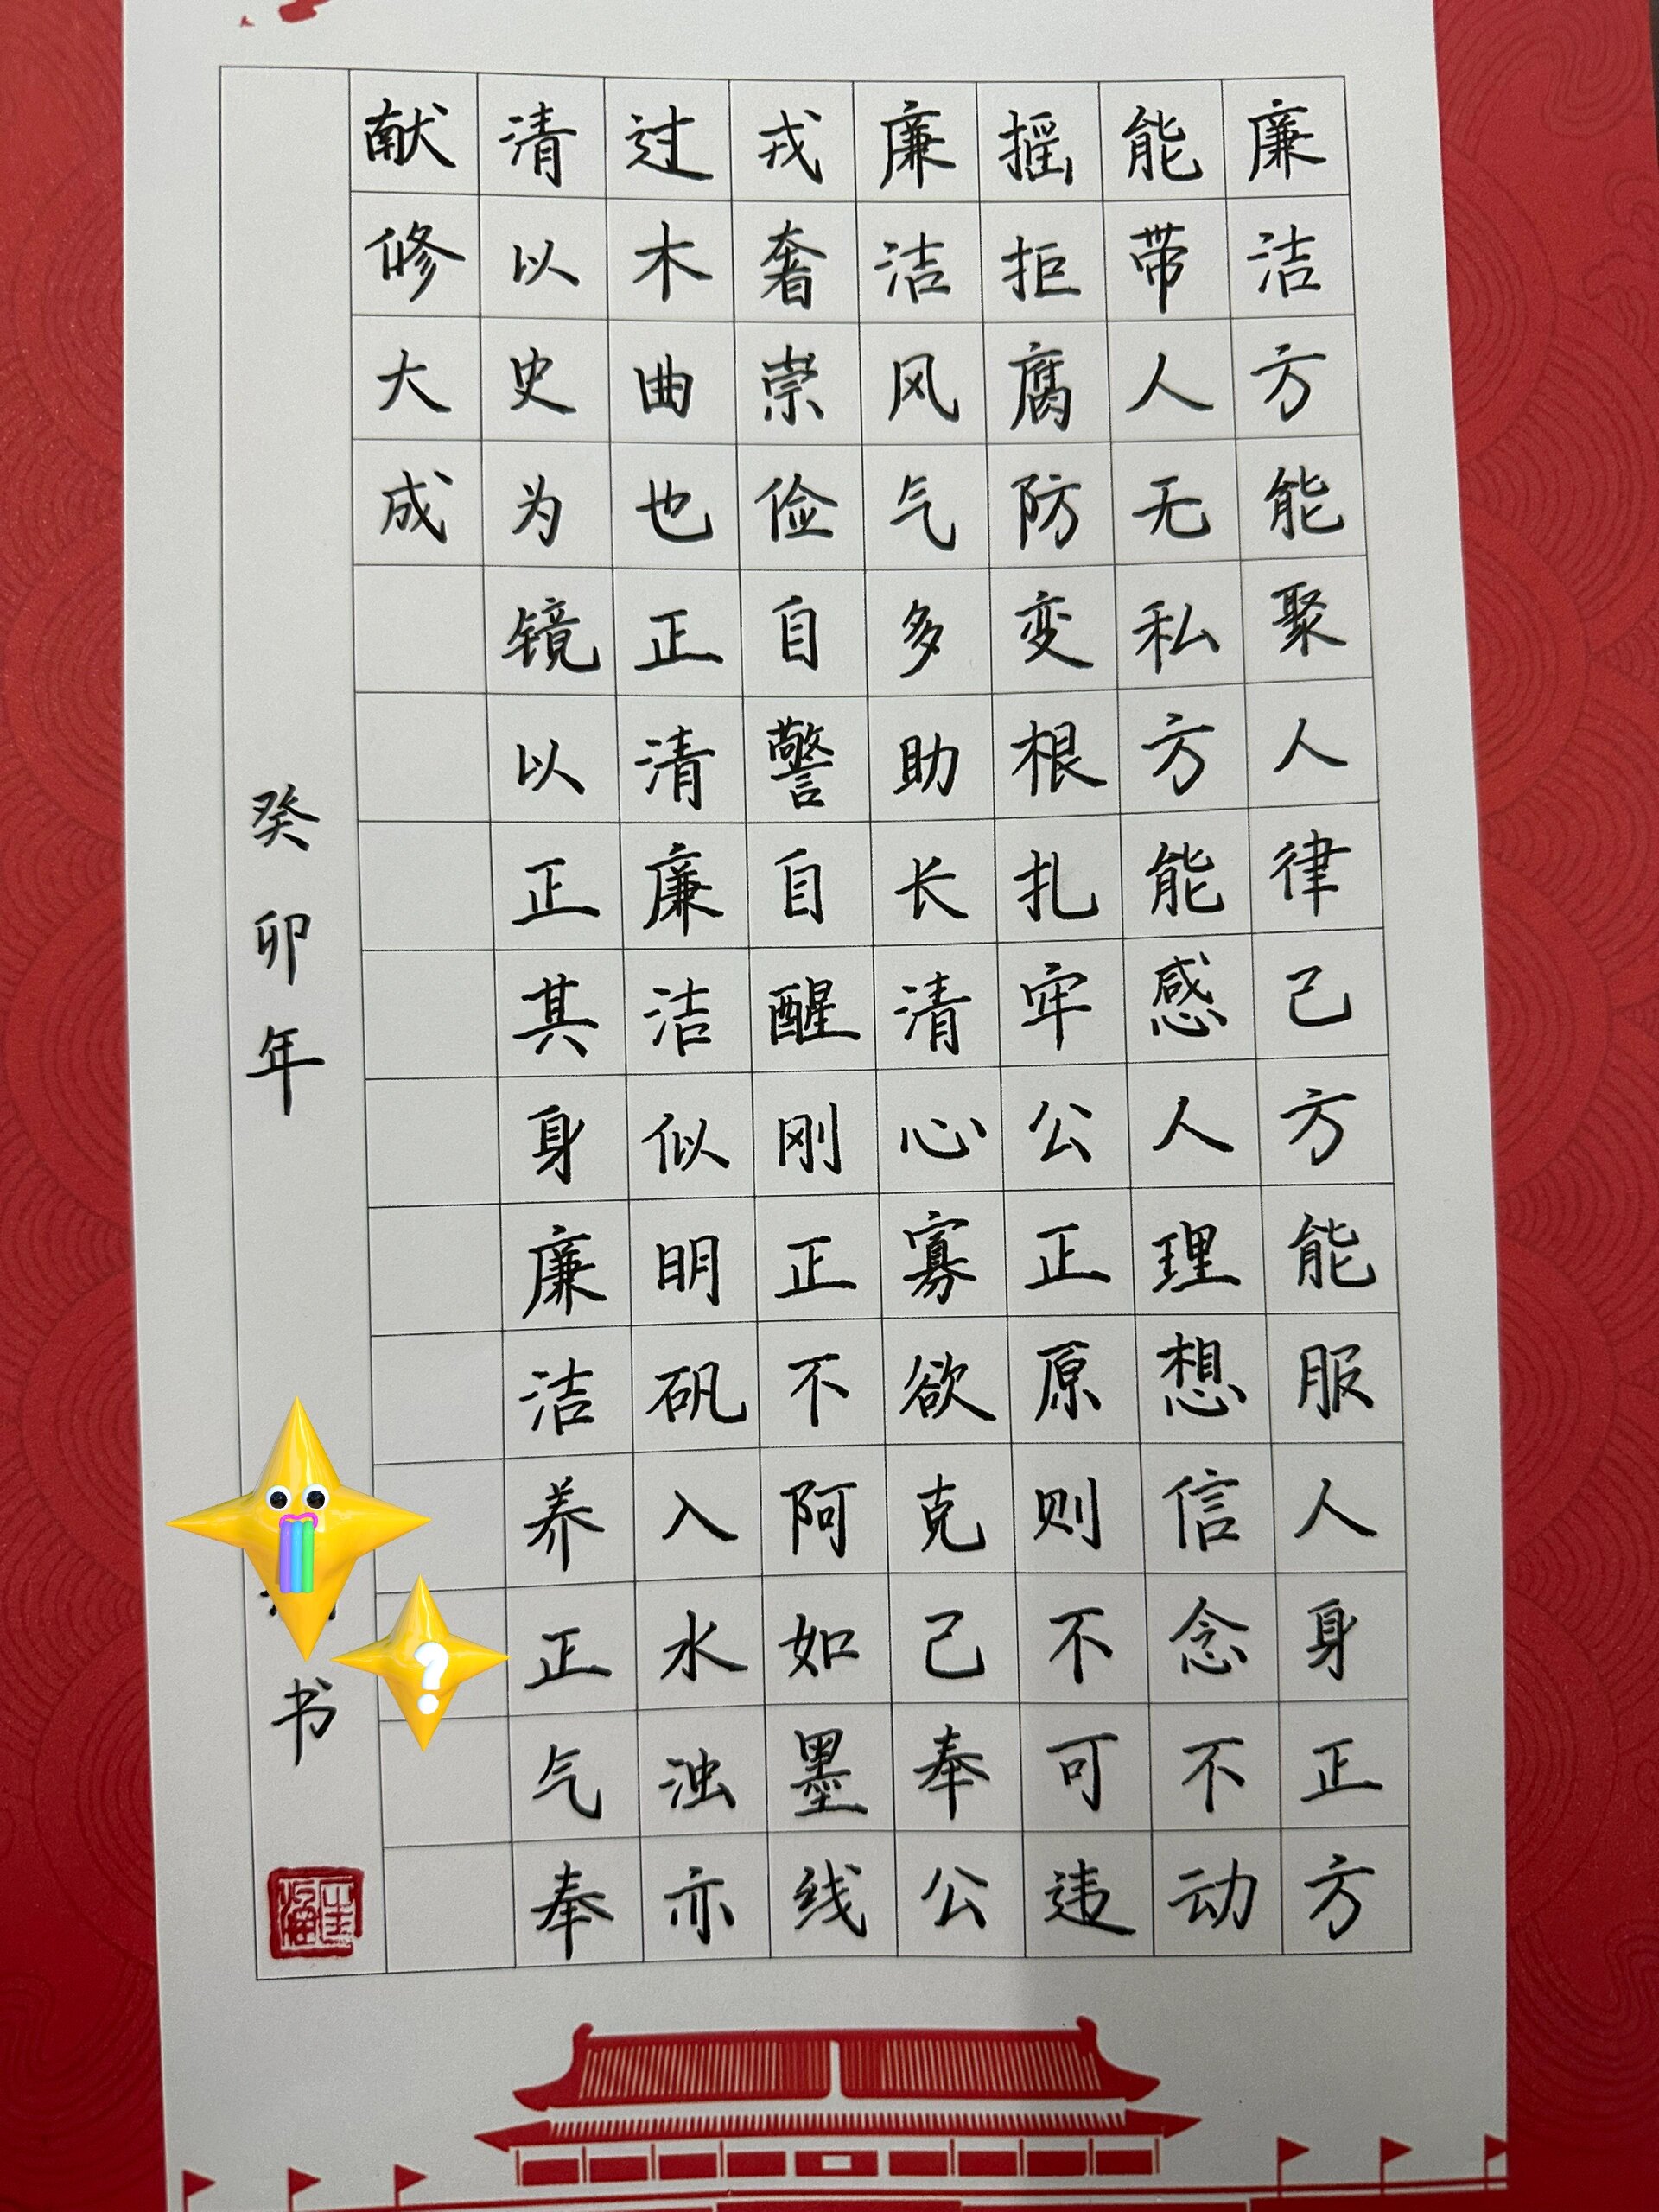 廉洁方能聚人律己方能服人身正方
能带人无私方能感人理想信念不动
摇拒腐防变根扎牢公正原则不可违
廉洁风气多助长清心寡欲克己奉公
戎奢崇俭自警自醒刚正不阿如墨线
过木曲也正清廉洁似明矾入水浊亦
清以史为镜以正其身廉洁养正气奉
献修大成
癸卯年
书